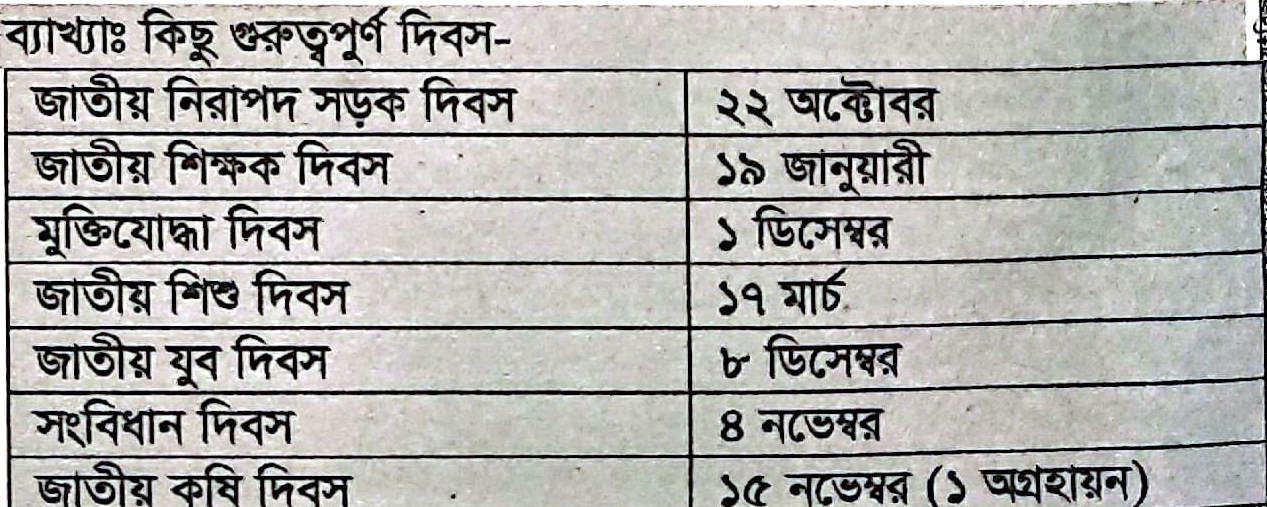 ব্যাখ্যাঃ কিছু গুরুত্বপুর্ণ দিবস-
জাতীয় নিরাপদ সড়ক দিবস ২২ অক্টোবর
জাতীয় শিক্ষক দিবস ১৯ জানুয়ারী
মুক্তিযোদ্ধা দিবস ১ ডিসেম্বর
জাতীয় শিশু দিবস ১৭ মার্চ
জাতীয় যুব দিবস ৮ ডিসেম্বর
সংবিধান দিবস ৪ নভেম্বর
জাতীয় কৃষি দিবস ১৫ নভেম্বর (১ অগ্রহায়ন)